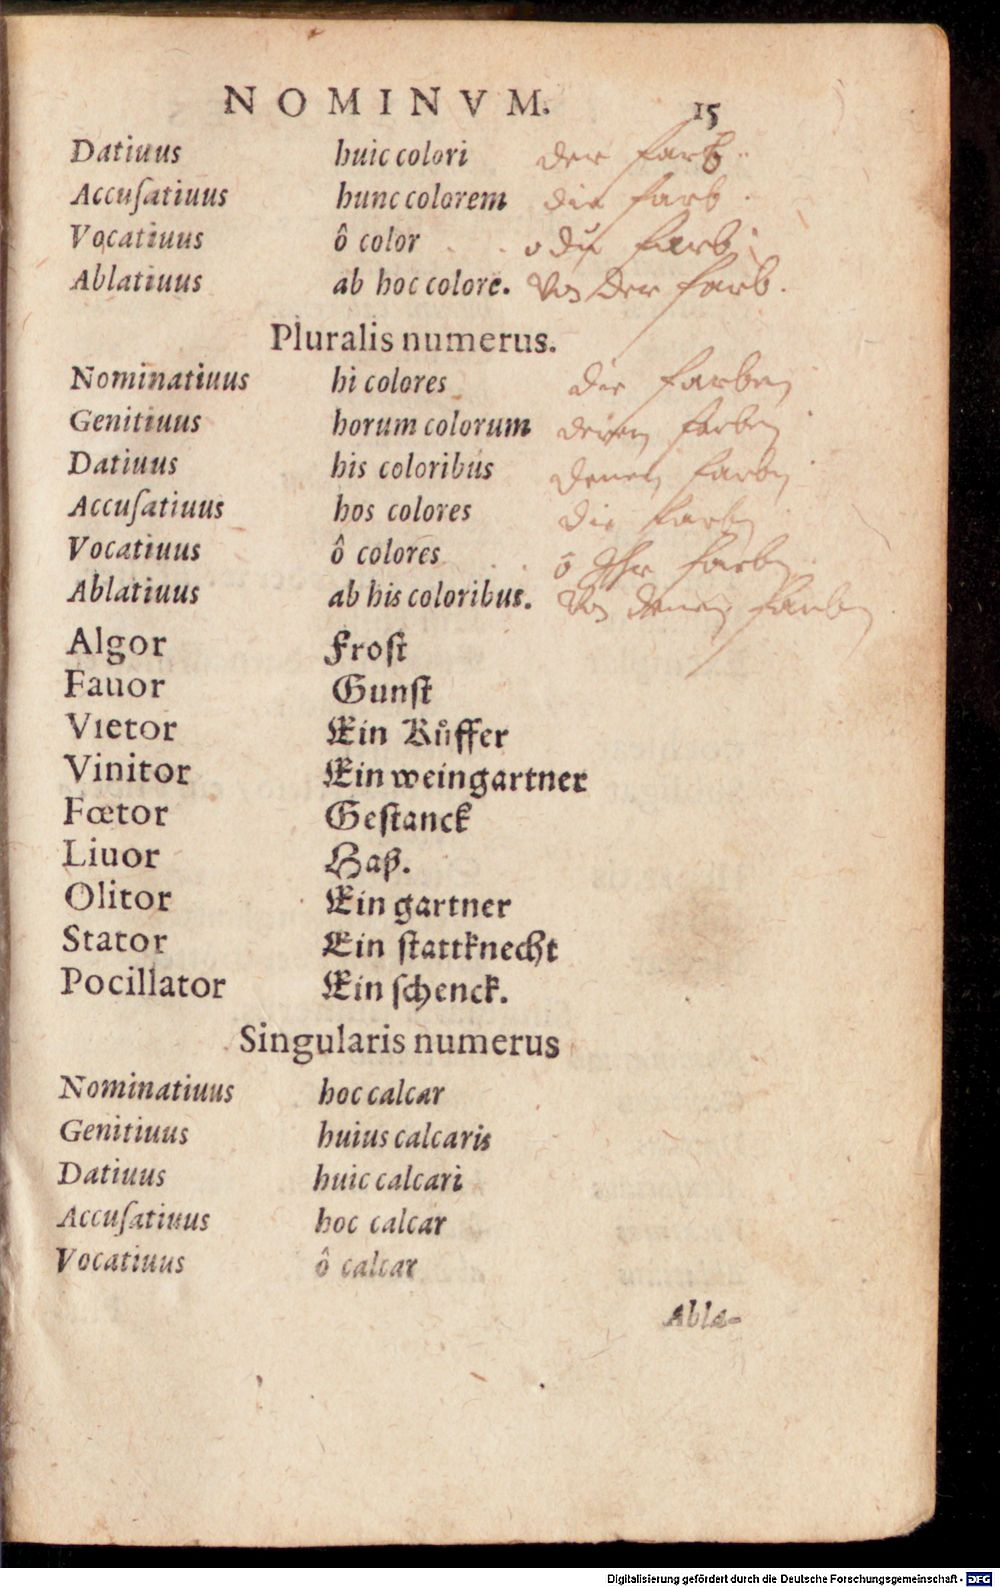 NOMINVM. 15
Datiuus huic colori der farb
Accuſatiuus hunc colorem die farb
Vocatiuus ô color o du farb
Ablatiuus ab hoc colore. Von der farb.
Pluralis numerus.
Nominatiuus hi colores die farben
Genitiuus horum colorum deren farben
Datiuus his coloribus denen farben
Accuſatiuus hos colores die farben
Vocatiuus ô colores ô Ihr farben
Ablatiuus ab his coloribus. Von denen farben
Algor Froſt
Fauor Gunſt
Vietor Ein Kuͤffer
Vinitor Ein weingartner
Fœtor Geſtanck
Liuor Haß.
Olitor Ein gartner
Stator Ein ſtattknecht
Pocillator Ein ſchenck.
Singularis numerus
Nominatiuus hoc calcar
Genitiuus huius calcaris
Datiuus huic calcari
Accuſatiuus hoc calcar
Vocatiuus ô calcar
Abla-
Digitalisierung gefördert durch die Deutsche Forschungsgemeinschaft - DFG